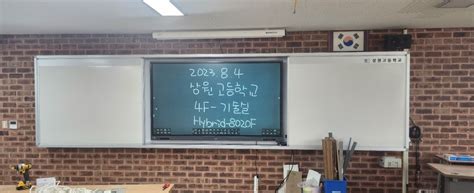 상원고등학교
2023. 8. 4
상원고등학교
4F-기술실
Hybrid-8020F